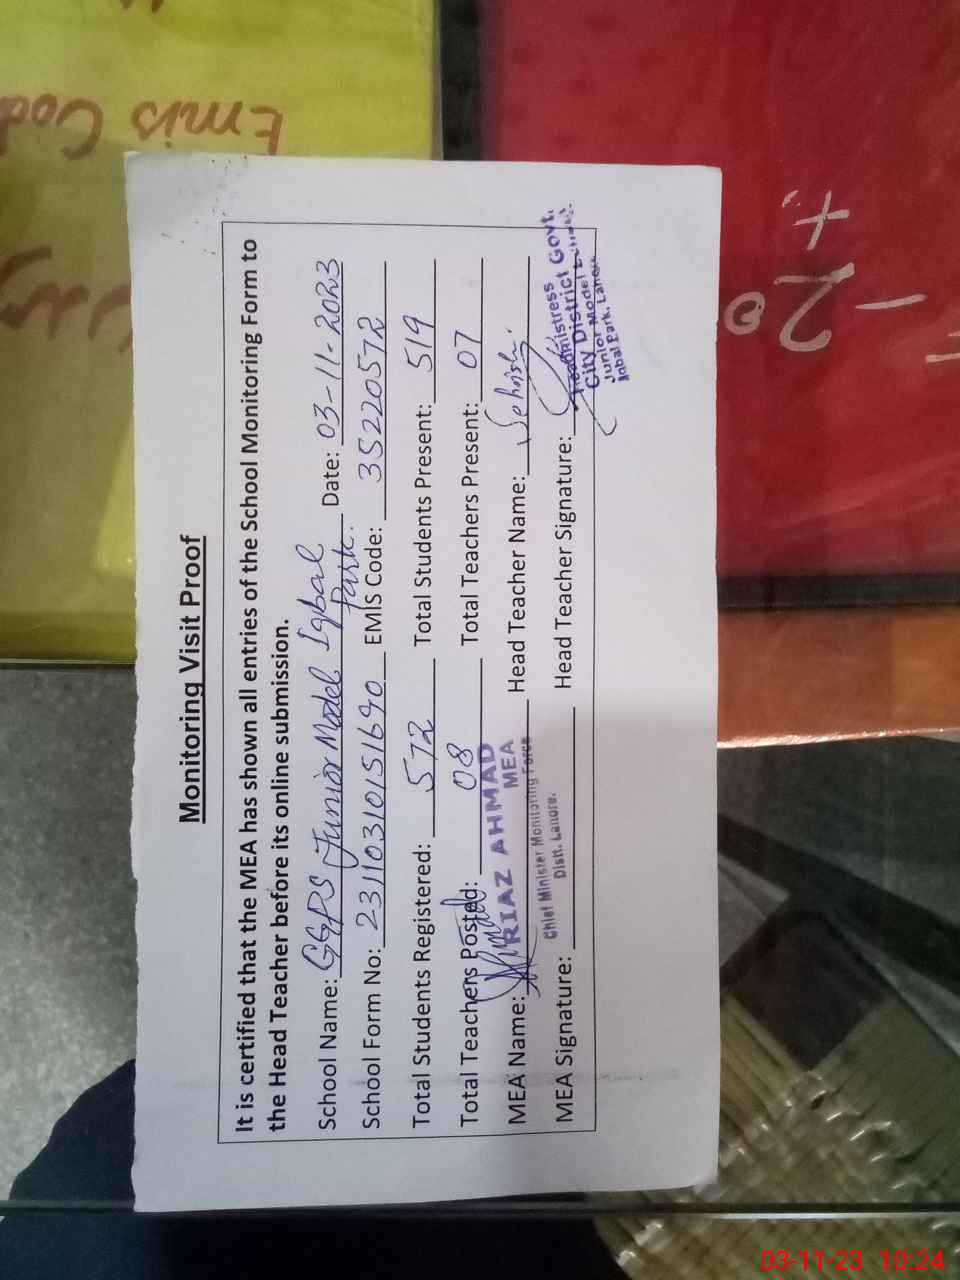 Monitoring Visit Proof
It is certified that the MEA has shown all entries of the School Monitoring Form to
the Head Teacher before its online submission.
School Name: GGPS Junior Model Iqbal Park. Date: 03-11-2023
School Form No: 23110310151690 EMIS Code: 35220572
Total Students Registered: 572 Total Students Present: 519
Total Teachers Posted: 08 Total Teachers Present: 07
MEA Name: RIAZ AHMAD Head Teacher Name: Sehrish
MEA
Chief Minister Monitoring Force
Distt. Lahore.
MEA Signature: Head Teacher Signature:
Headmistress Govt.
City District
Junior Model
Iqbal Park, Lahore
Emis Cod
+
-20
03-11-23 10:24